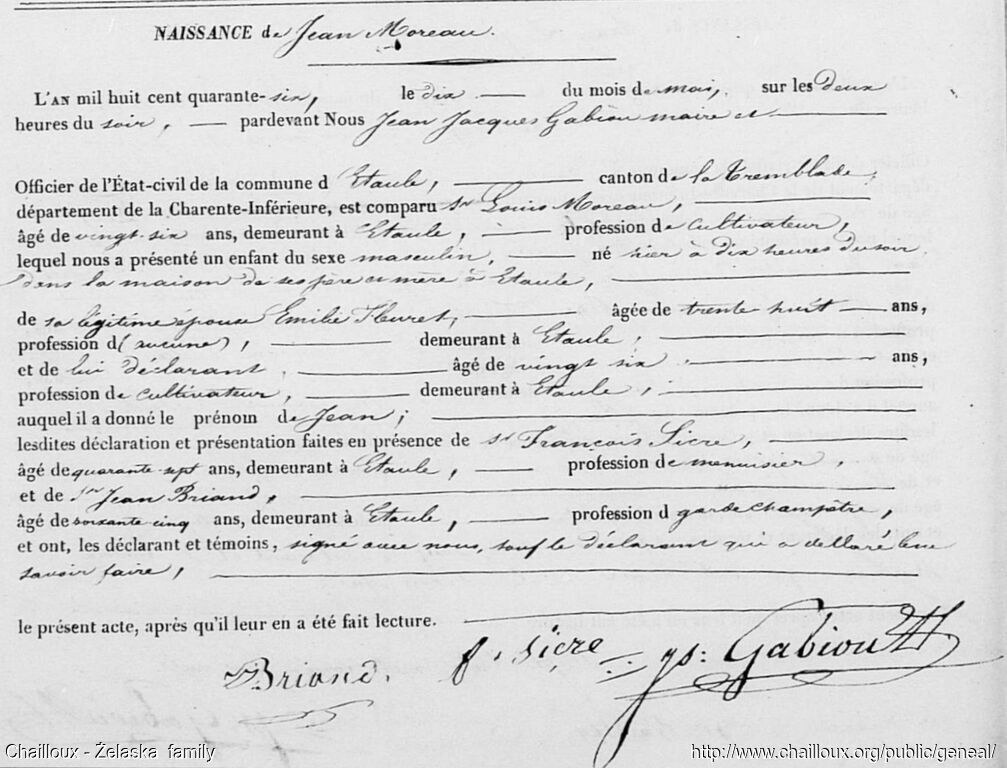 NAISSANCE de Jean Moreau.
L'AN mil huit cent quarante-six, le dix du mois de mai, sur les deux
heures du soir, pardevant Nous Jean Jacques Gabiou maire et
Officier de l'État-civil de la commune d'Etaule, canton de la Tremblade,
département de la Charente-Inférieure, est comparu Sr Louis Moreau,
âgé de vingt-six ans, demeurant à Etaule, profession de cultivateur,
lequel nous a présenté un enfant du sexe masculin, né hier à dix heures du soir
dans la maison de ses père et mère à Etaule,
de sa légitime épouse Emilie Fleuret, âgée de trente huit ans,
profession d (aucune), demeurant à Etaule,
et de lui déclarant, âgé de vingt six ans,
profession de cultivateur, demeurant à Etaule,
auquel il a donné le prénom de Jean;
lesdites déclaration et présentation faites en présence de Sr François Sicre,
âgé de quarante-sept ans, demeurant à Etaule, profession de menuisier,
et de Sr Jean Briand,
âgé de soixante-cinq ans, demeurant à Etaule, profession d garde champêtre,
et ont, les déclarant et témoins, signé avec nous, sauf le déclarant qui a déclaré ne
savoir faire,
le présent acte, après qu'il leur en a été fait lecture.
Briand. f. sicre js: Gabiou
Chailloux - Żelaska family http://www.chailloux.org/public/geneal/